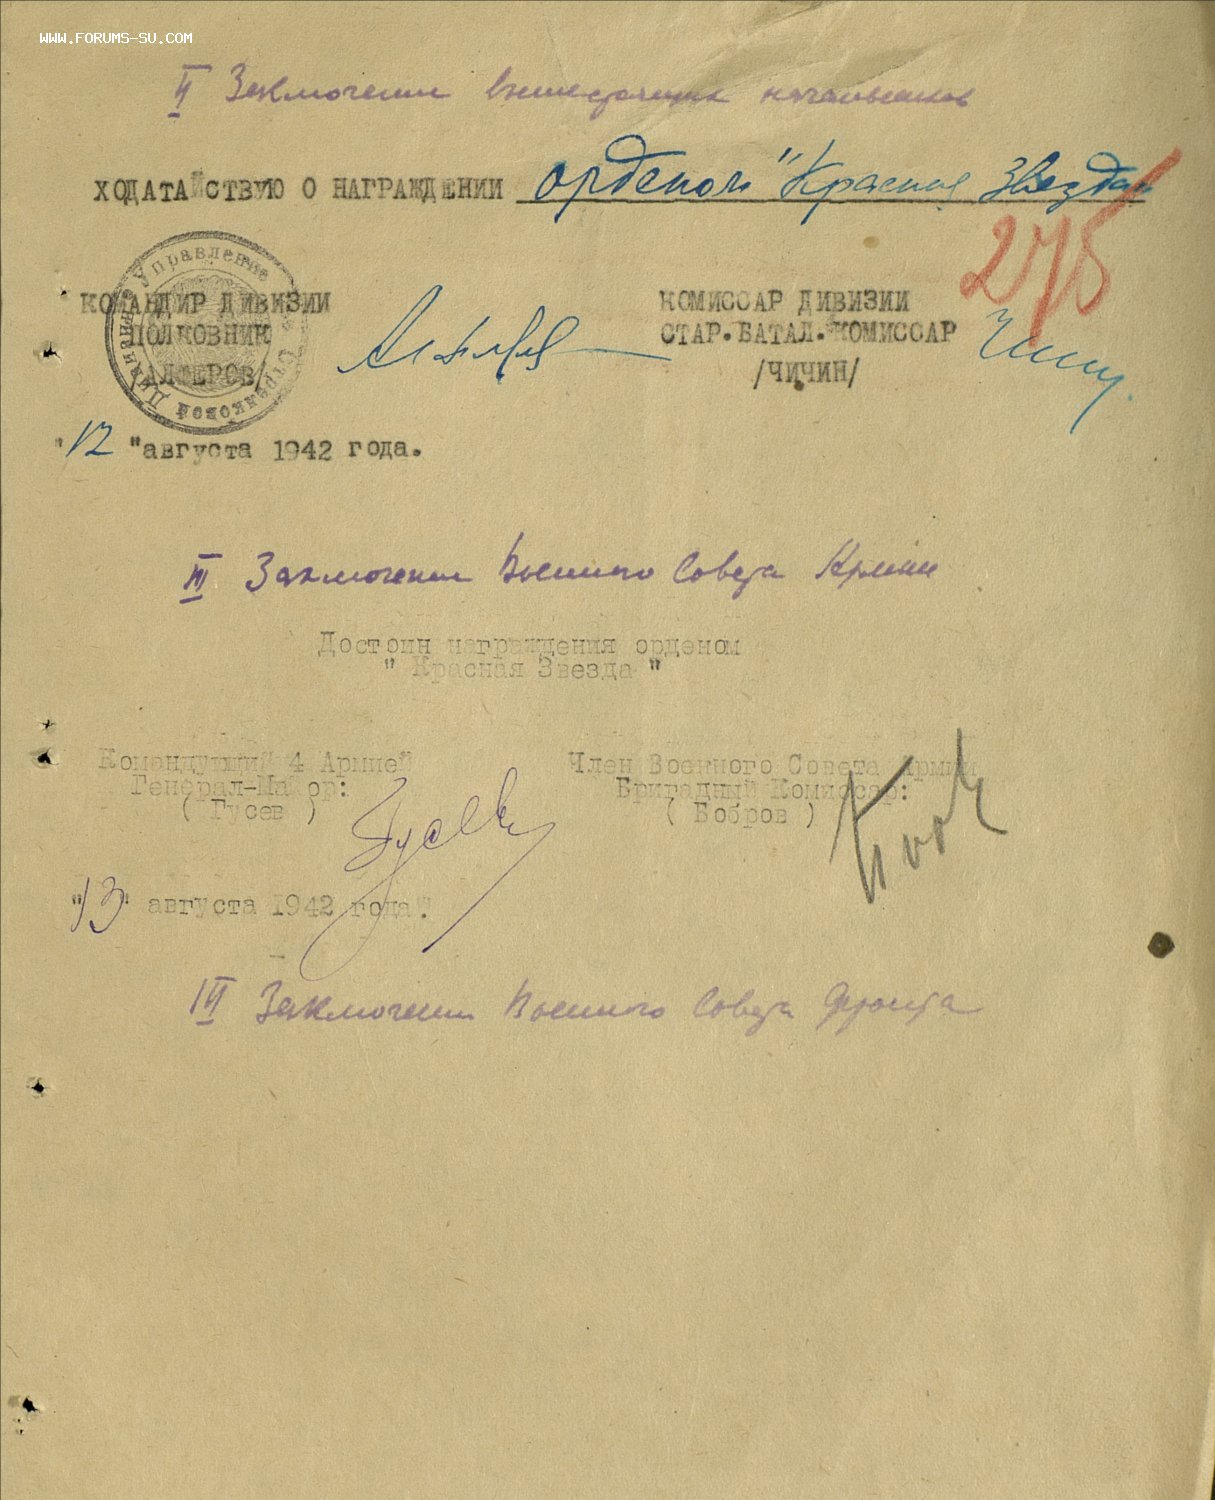 WWW.FORUMS-SU.COM
II Заключение вышестоящих начальников
ХОДАТАЙСТВУЮ О НАГРАЖДЕНИИ орденом "Красная Звезда"
275
Управление Стрелковой Дивизии
КОМАНДИР ДИВИЗИИ
ПОЛКОВНИК
/АЛФЕРОВ/
КОМИССАР ДИВИЗИИ
СТАР.БАТАЛ.КОМИССАР
/ЧИЧИН/
"12 "августа 1942 года.
III Заключение Военного Совета Армии
Достоин награждения орденом
" Красная Звезда "
Командующий 4 Армией
Генерал-Майор:
( Гусев )
Член Военного Совета Армии
Бригадный Комиссар:
( Бобров )
"13" августа 1942 года.
IV Заключение Военного Совета Фронта